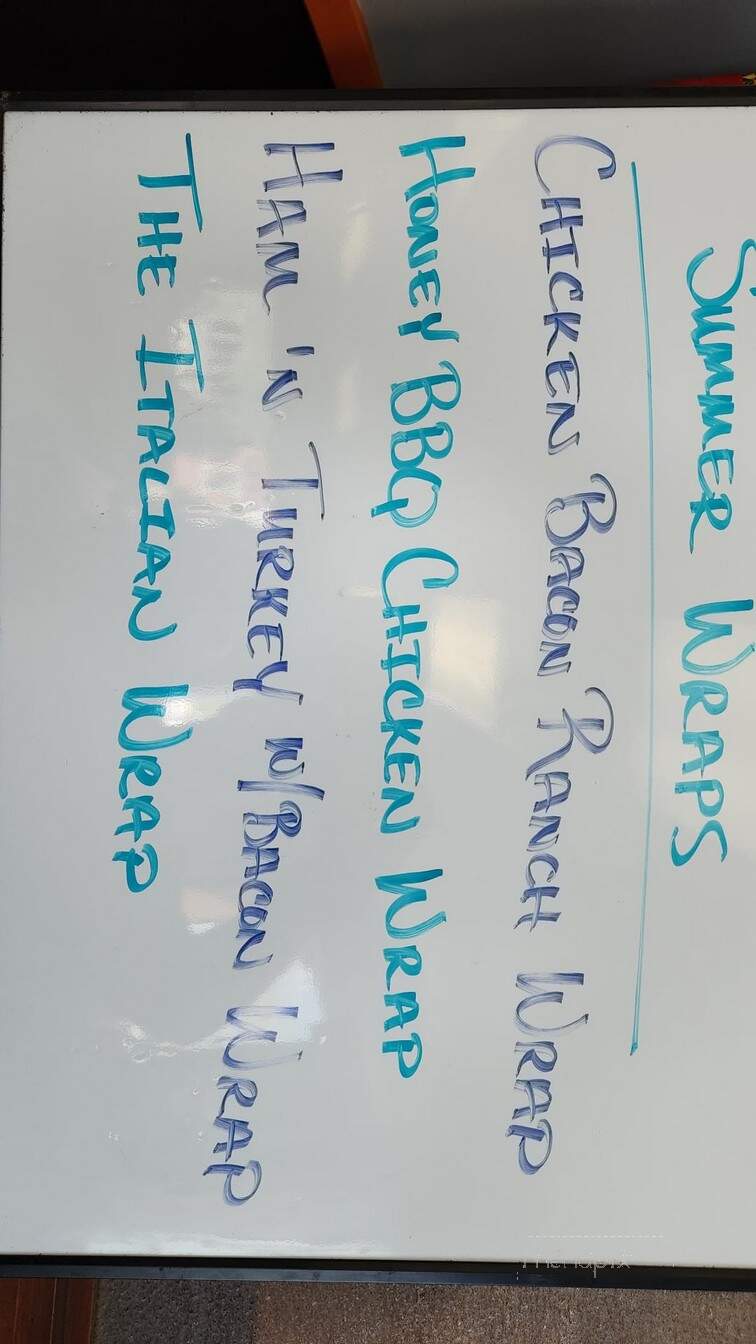 SUMMER WRAPS
CHICKEN BACON RANCH WRAP
HONEY BBQ CHICKEN WRAP
HAM 'N TURKEY W/BACON WRAP
THE ITALIAN WRAP